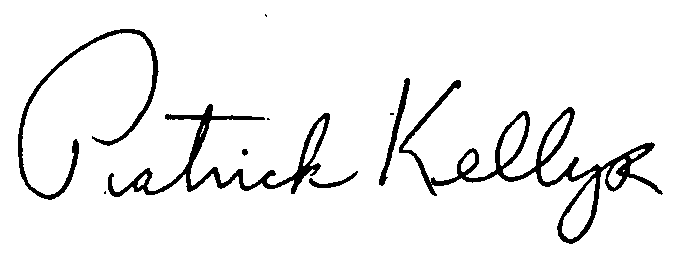 Patrick Kelly